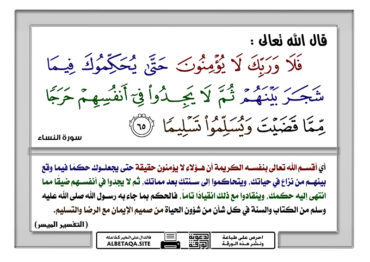 قال الله تعالى :
فَلَا وَرَبِّكَ لَا يُؤْمِنُونَ حَتَّىٰ يُحَكِّمُوكَ فِيمَا
شَجَرَ بَيْنَهُمْ ثُمَّ لَا يَجِدُوا۟ فِىٓ أَنفُسِهِمْ حَرَجًا
مِّمَّا قَضَيْتَ وَيُسَلِّمُوا۟ تَسْلِيمًا ٦٥
سورة النساء
أي أقسم الله تعالى بنفسه الكريمة أن هؤلاء لا يؤمنون حقيقة حتى يجعلوك حكمًا فيما وقع
بينهم من نزاع في حياتك، ويتحاكموا إلى سنتك بعد مماتك، ثم لا يجدوا في أنفسهم ضيقًا مما
انتهى إليه حكمك، وينقادوا مع ذلك انقيادًا تامًا، فالحكم بما جاء به رسول الله صلى الله عليه
وسلم من الكتاب والسنة في كل شأن من شؤون الحياة من صميم الإيمان مع الرضا والتسليم.
(التفسير الميسر)
احرص على طباعة
ونشر هذه الورقة
فالدال على الخير كفاعله
ALBETAQA.SITE